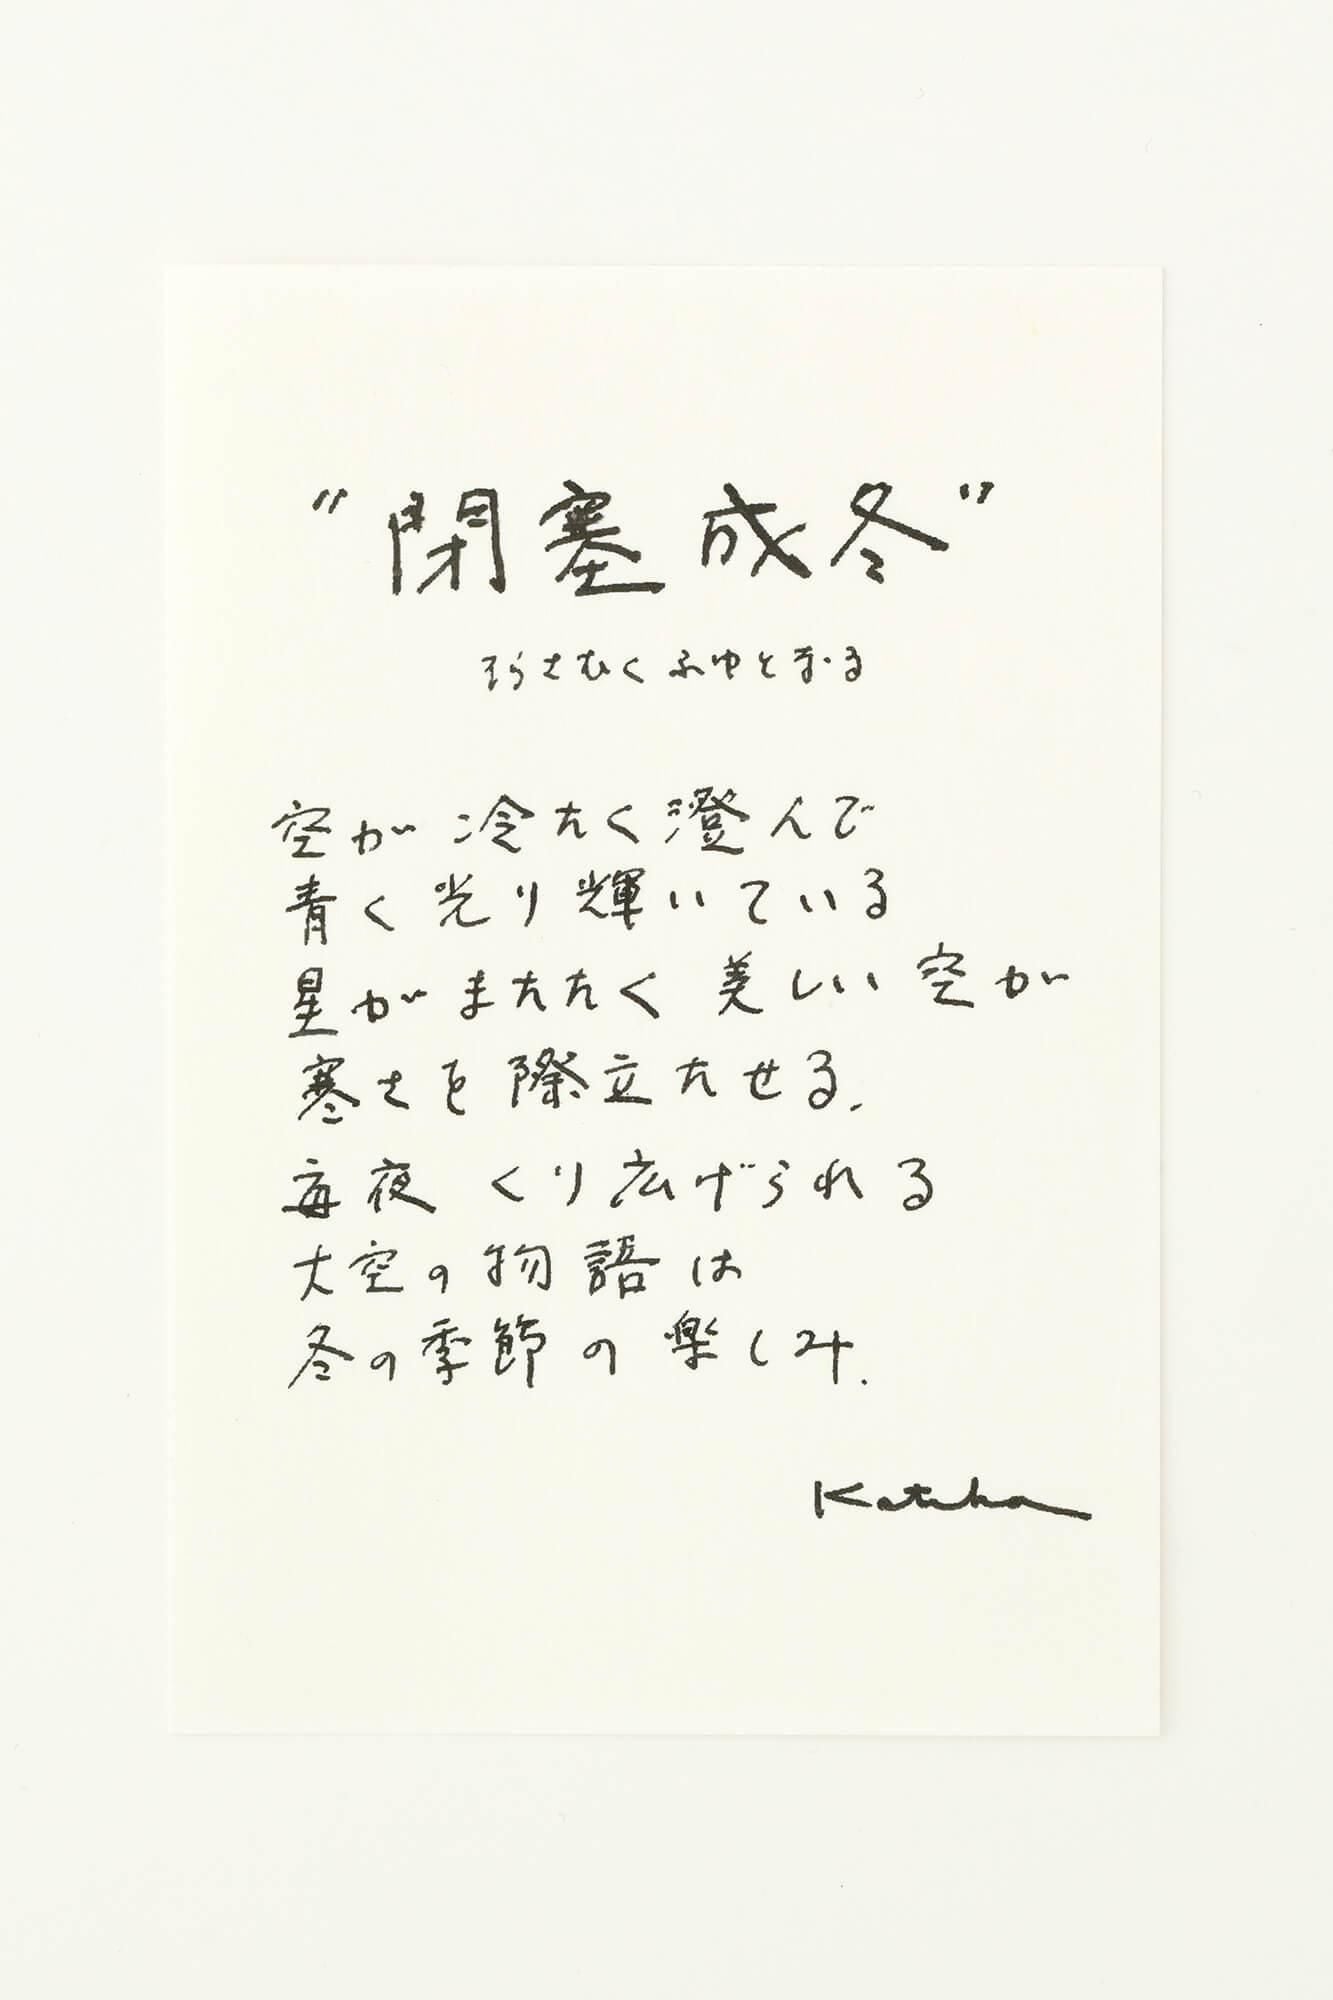 "閉塞成冬"
そらさむくふゆとなる
空が冷たく澄んで
青く光り輝いている
星がまたたく美しい空が
寒さを際立たせる.
毎夜くり広げられる
大空の物語は
冬の季節の楽しみ.